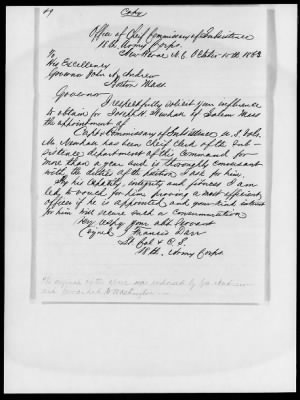 Copy
Office of Chief Commissary of Subsistence
18th Army Corps.
New Berne N.C. October 10th 1863
To
His Excellency
Governor John A. Andrew
Boston Mass
Governor
I respectfully solicit your influence
to obtain for Joseph Newhall of Salem Mass
the appointment of
Capt & Commissary of Subsistence U.S. Vols.
Mr. Newhall has been Chief Clerk of the Sub-
sistence department of this Command for
more than a year and is thoroughly conversant
with the duties of the position I ask for him.
By his Capacity, integrity and fitness I am
led to vouch for him proving a most efficient
officer if he is appointed and your kind interest
for him will secure such a consummation
Very Respy your obt Servant
Signed J Francis Darr
Lt Col & C.S.
18th Army Corps
The original of the above was endorsed by Gov Andrew
and forwarded to Washington